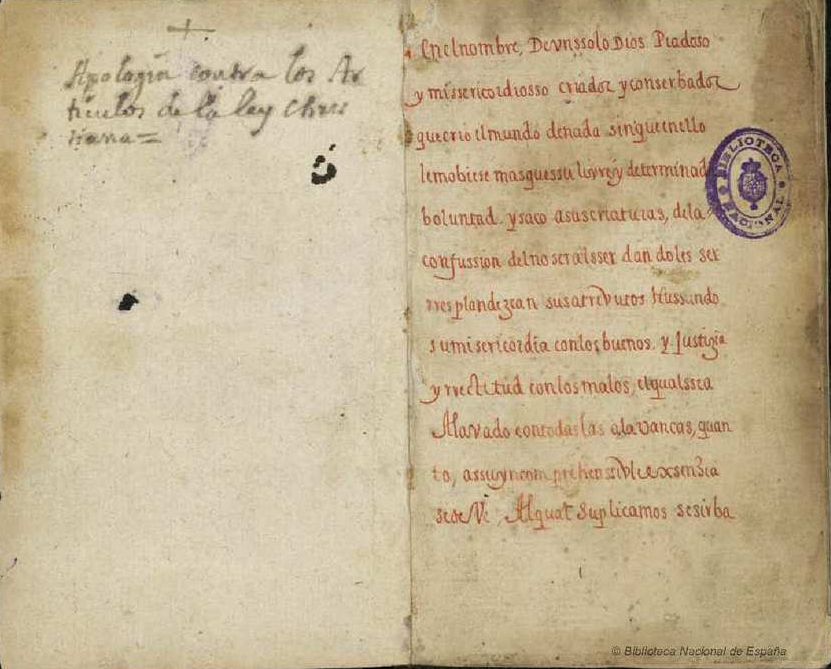 Apologia contra los Ar
ticulos de la ley Chris
tiana =
En el nombre, De vn ssolo Dios Piadoso
y missericordiosso criador y conserbador
que crio el mundo de nada sin que en ello
le mobiese mas que ssu livre y determinada
boluntad. y saco a sus criaturas, de la
confussion del no ser al sser dandoles ser
rresplandezcan sus atrevutos Hussando
su misericordia con los buenos. y Justizia
y rrectitud con los malos, el qual ssea
Alavado con todas las alavancas, quan
to, a ssu yncomprehenssivle exsenzia
se deVe, Al qual Suplicamos se sirba
BIBLIOTECA NACIONAL
© Biblioteca Nacional de España